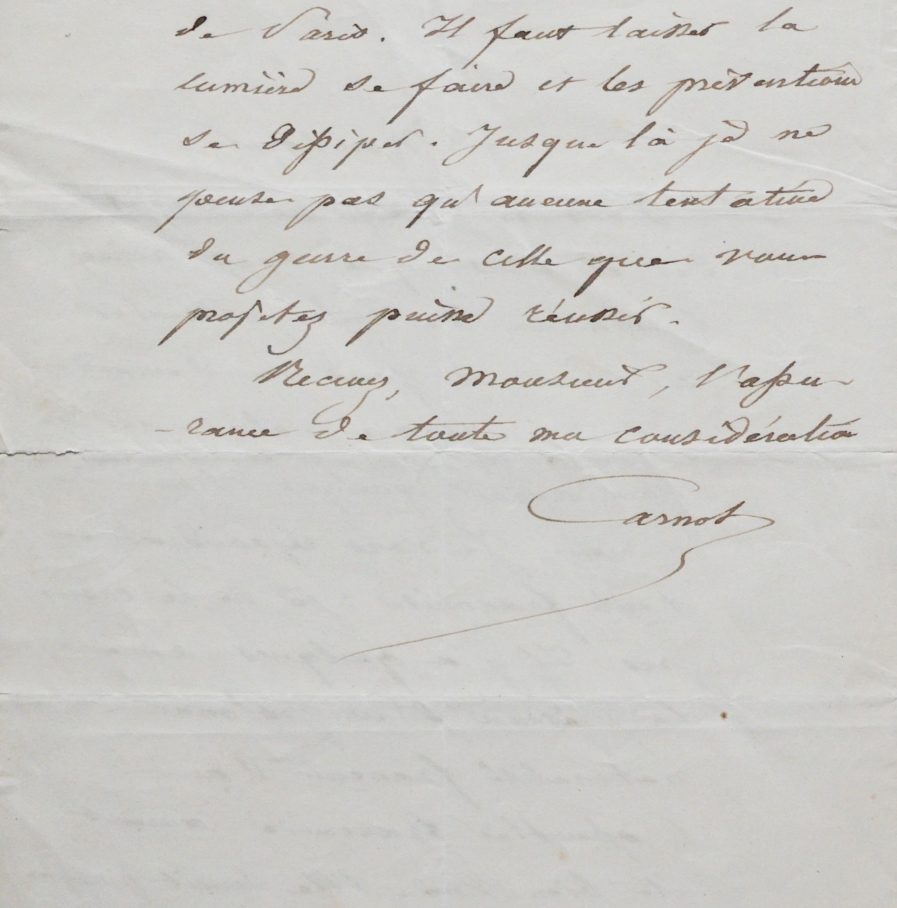 de Paris. Il faut laisser la
lumière se faire et les préventions
se dissiper. Jusque là je ne
pense pas qu'aucune tentative
du genre de celle que vous
projetez puisse réussir.
Recevez, Monsieur, l'assu-
-rance de toute ma considération
Carnot